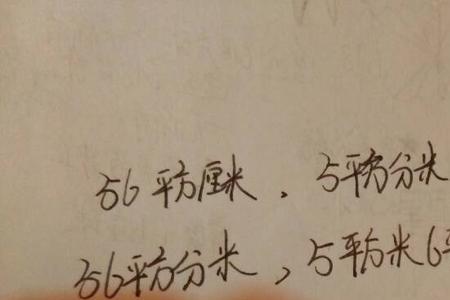 56平方厘米、5平方分米
56平方分米，5平方米6